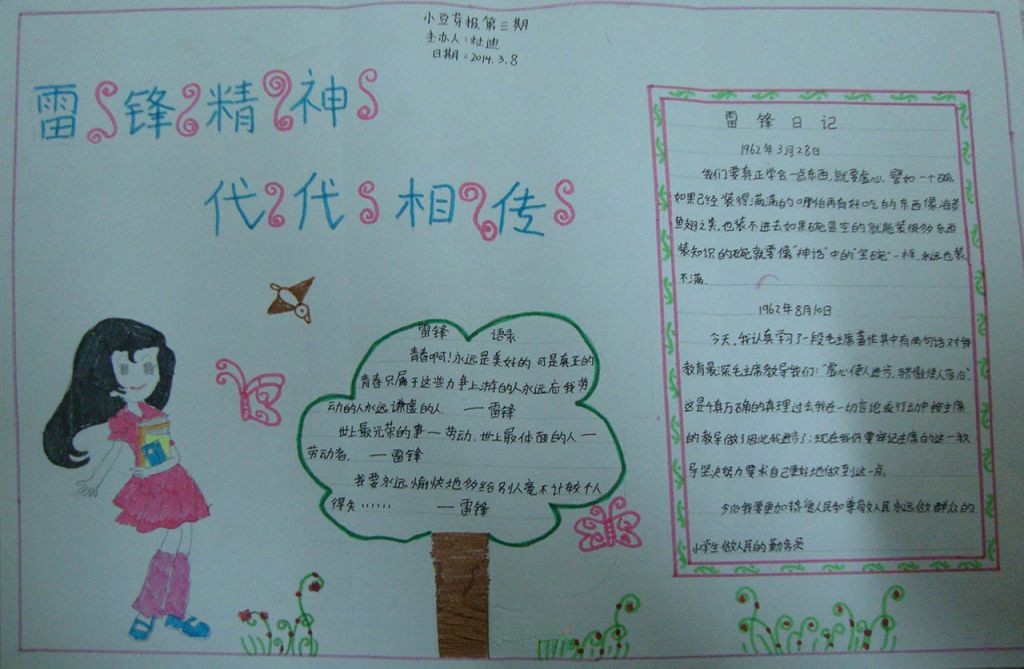 小豆芽报第三期
主办人：杜迪
日期：2014.3.8
雷锋精神
代代相传
雷锋语录
青春啊！永远是美好的可是真正的
青春只属于这些力争上游的人永远忘我劳
动的人永远谦虚的人 — 雷锋
世上最光荣的事—劳动.世上最体面的人—
劳动者. — 雷锋
我要永远愉快地多给别人毫不计较个人
得失…… — 雷锋
雷锋日记
1962年3月28日
我们要真正学会一点东西,就要虚心.譬如一个碗,
如果已经装得满满的哪怕再有好吃的东西像海参
鱼翅之类,也装不进去如果碗是空的就能装很多东西
装知识的碗就要像“神话”中的“宝碗”一样,永远也装
不满.
1962年8月10日
今天,我认真学习了一段毛主席著作其中有两句话对我
教育最深毛主席教导我们：“虚心使人进步,骄傲使人落后”
这是千真万确的真理过去我在一切言论或行动中按主席
的教导做了因此我进步了；现在我仍要牢记主席的这一教
导坚决努力要求自己更好地做到这一点.
今后我要更加热爱人民和尊敬人民永远做群众的
小学生做人民的勤务员